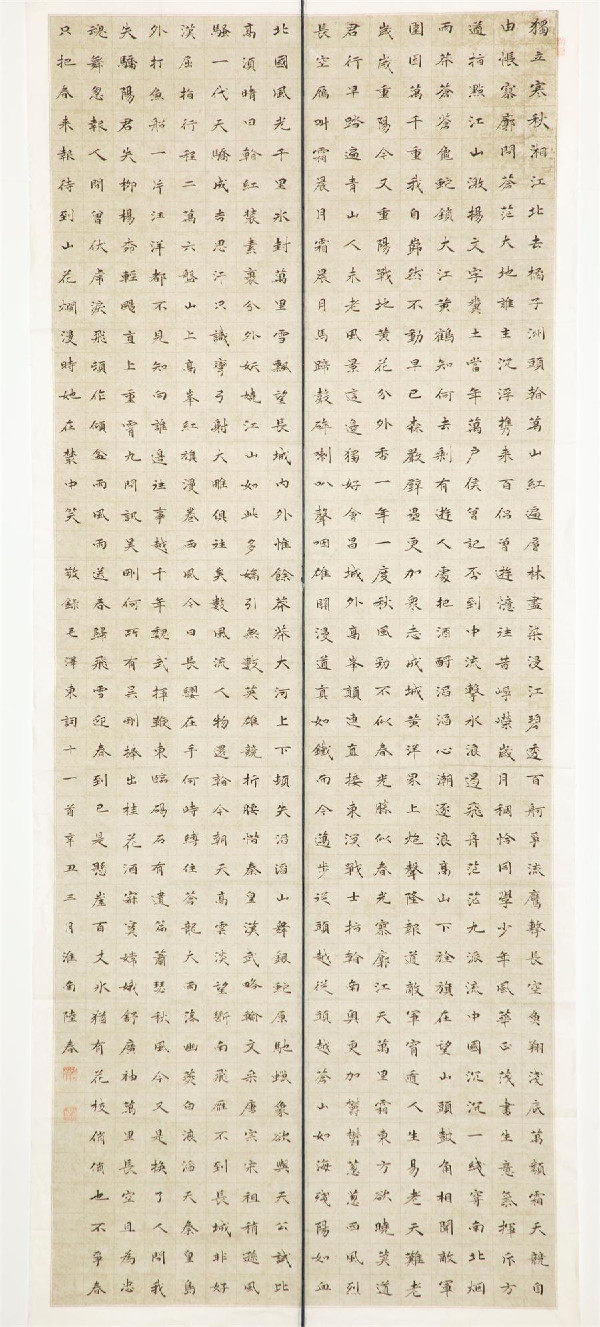 獨立寒秋湘江北去橘子洲頭看萬山紅遍層林盡染漫江碧透百舸爭流鷹擊長空魚翔淺底萬類霜天競自
由悵寥廓問蒼茫大地誰主沉浮携來百侶曾遊憶往昔崢嶸歲月稠恰同學少年風華正茂書生意氣揮斥方
遒指點江山激揚文字糞土當年萬戶侯曾記否到中流擊水浪遏飛舟茫茫九派流中國沉沉一綫穿南北烟
雨莽蒼蒼龜蛇鎖大江黃鶴知何去剩有遊人處把酒酹滔滔心潮逐浪高山下旌旗在望山頭鼓角相聞敵軍
圍困萬千重我自巋然不動早已森嚴壁壘更加衆志成城黃洋界上炮聲隆報道敵軍宵遁人生易老天難老
歲歲重陽今又重陽戰地黃花分外香一年一度秋風勁不似春光勝似春光寥廓江天萬里霜東方欲曉莫道
君行早踏遍青山人未老風景這邊獨好會昌城外高峯顛連直接東溟戰士指看南粵更加鬱鬱蔥蔥西風烈
長空雁叫霜晨月霜晨月馬蹄聲碎喇叭聲咽雄關漫道真如鐵而今邁步從頭越從頭越蒼山如海殘陽如血
北國風光千里冰封萬里雪飄望長城內外惟餘莽莽大河上下頓失滔滔山舞銀蛇原馳蠟象欲與天公試比
高須晴日看紅裝素裹分外妖嬈江山如此多嬌引無數英雄競折腰惜秦皇漢武略輸文采唐宗宋祖稍遜風
騷一代天驕成吉思汗只識彎弓射大雕俱往矣數風流人物還看今朝天高雲淡望斷南飛雁不到長城非好
漢屈指行程二萬六盤山上高峯紅旗漫卷西風今日長纓在手何時縛住蒼龍大雨落幽燕白浪滔天秦皇島
外打魚船一片汪洋都不見知向誰邊往事越千年魏武揮鞭東臨碣石有遺篇蕭瑟秋風今又是換了人間我
失驕陽君失柳楊柳輕颺直上重霄九問訊吳剛何所有吳剛捧出桂花酒寂寞嫦娥舒廣袖萬里長空且為忠
魂舞忽報人間曾伏虎淚飛頓作傾盆雨風雨送春歸飛雪迎春到已是懸崖百丈冰猶有花枝俏俏也不爭春
只把春來報待到山花爛漫時她在叢中笑 敬錄毛澤東詞十一首辛丑三月淮南陸泰